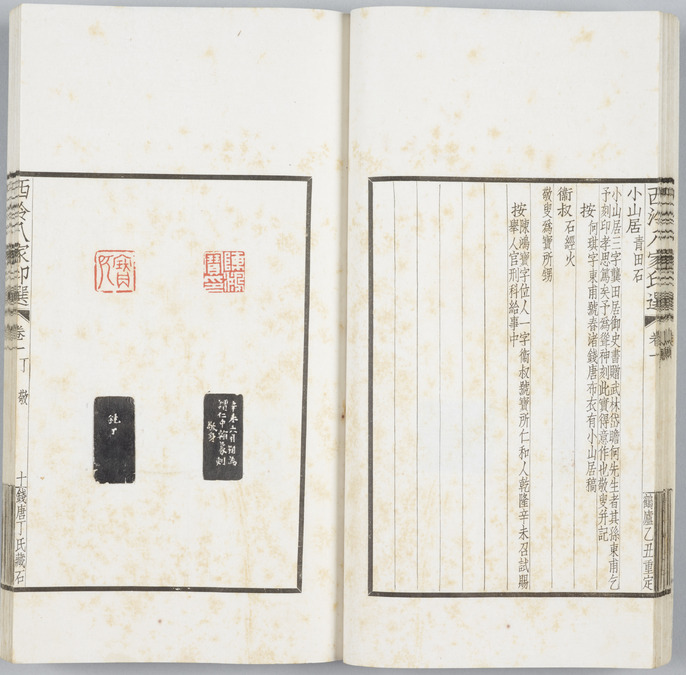 西泠八家印選 卷一
鶴廬乙丑重定
小山居 青田石
小山居三字龔田居御史書贈武林岱瞻何先生者其孫東甫乞
予刻印孝思篤矣予爲聳神刻此實得意作也敬叟幷記
按何琪字東甫號春渚錢唐布衣有小山居稿
衞叔 石經火
敬叟爲寶所甥
按陳鴻寶字位人一字衞叔號寶所仁和人乾隆辛未召試賜
舉人官刑科給事中
陳鴻寶印
辛未六月朔爲
仁中翰篆刻
敬身
鈍丁
西泠八家印選 卷一 丁敬 十 錢唐丁氏藏石